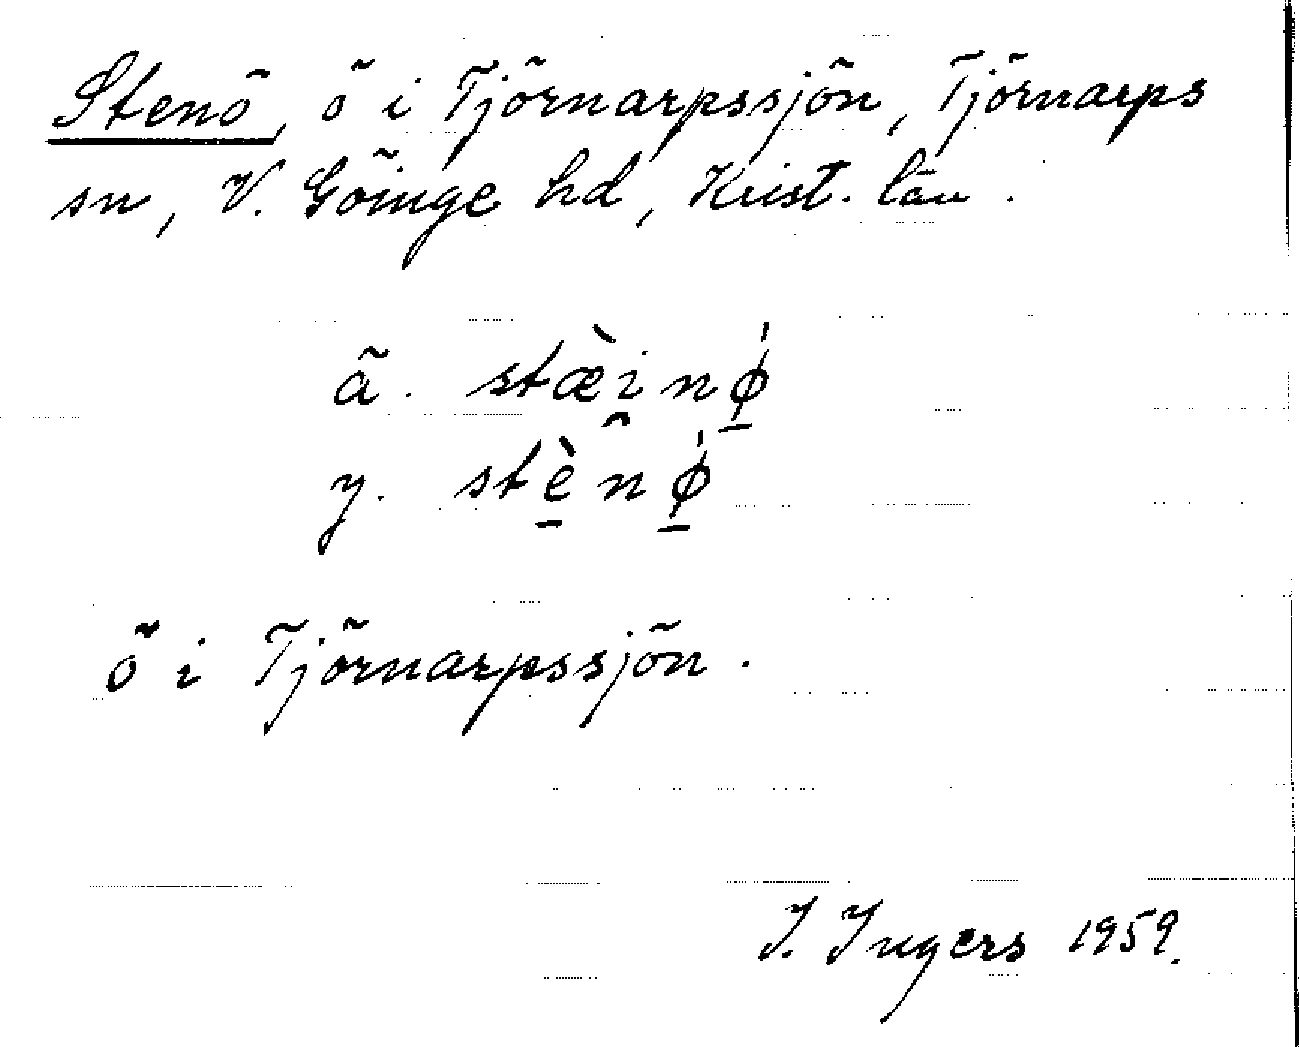 Stenö, ö i Tjörnarpssjön, Tjörnarps
sn, V. Göinge hd, Krist. län.
ä. stæ̀i̯nǿ̱
y. stè̱nǿ̱
ö i Tjörnarpssjön.
I. Ingers 1959.